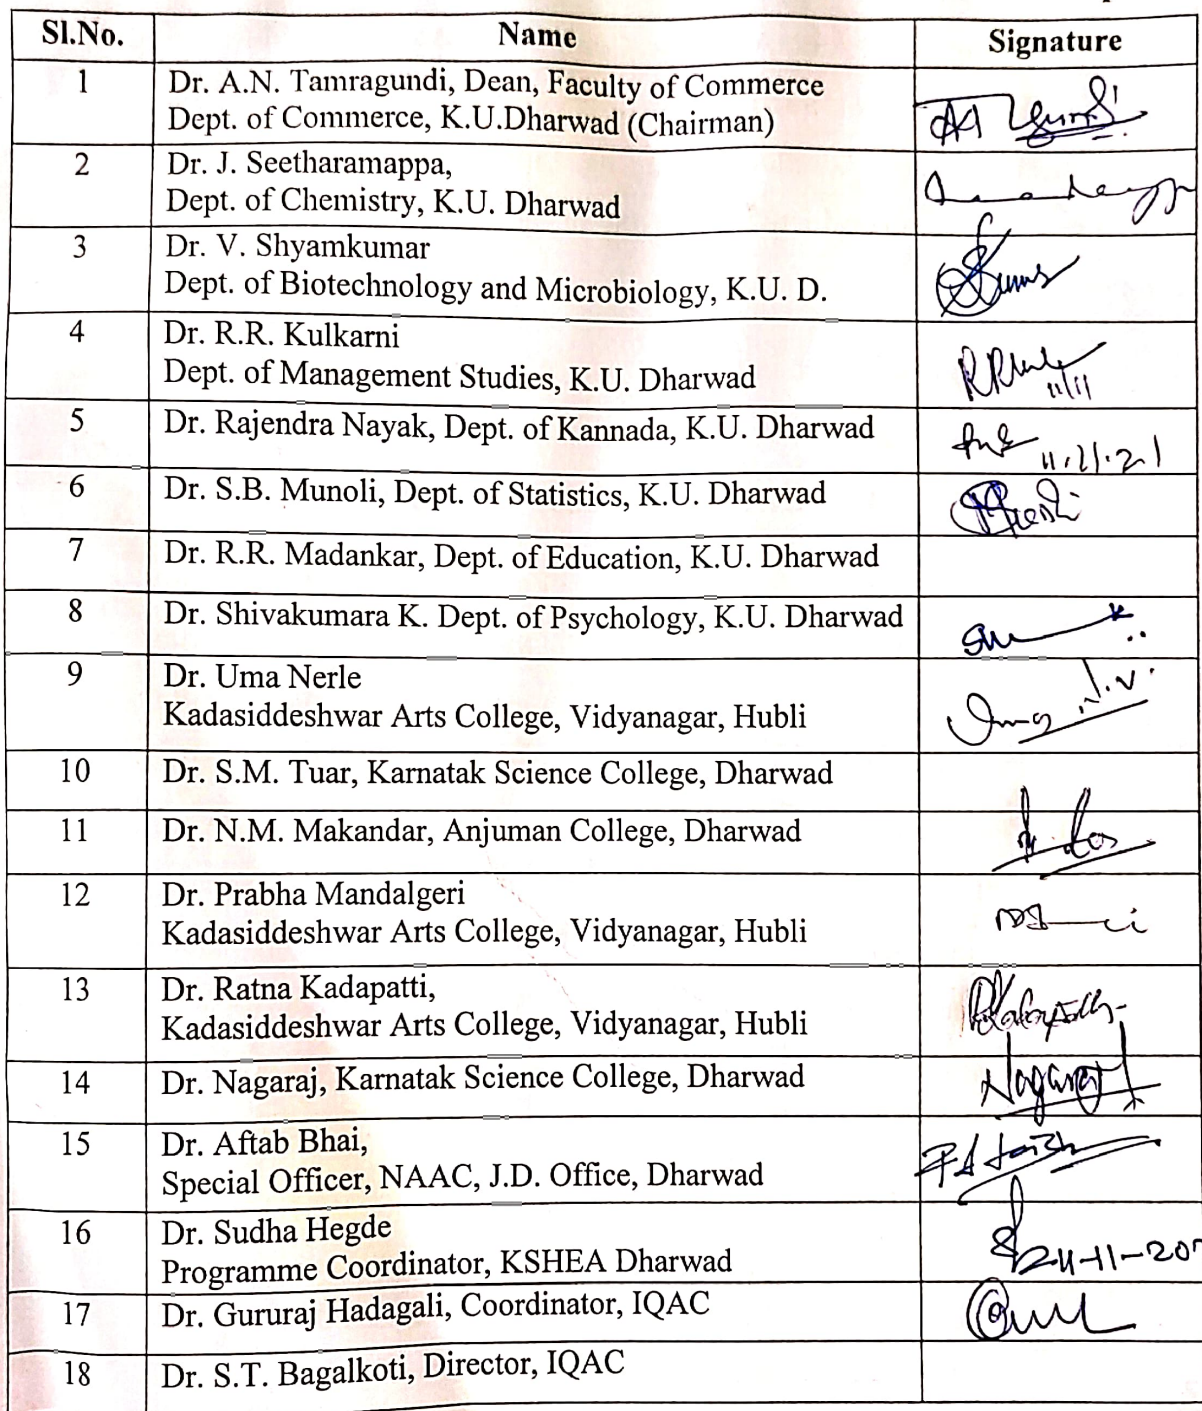 Sl.No. Name Signature
1 Dr. A.N. Tamragundi, Dean, Faculty of Commerce
Dept. of Commerce, K.U.Dharwad (Chairman)
2 Dr. J. Seetharamappa,
Dept. of Chemistry, K.U. Dharwad
3 Dr. V. Shyamkumar
Dept. of Biotechnology and Microbiology, K.U. D.
4 Dr. R.R. Kulkarni
Dept. of Management Studies, K.U. Dharwad
11/11
5 Dr. Rajendra Nayak, Dept. of Kannada, K.U. Dharwad
6 Dr. S.B. Munoli, Dept. of Statistics, K.U. Dharwad
7 Dr. R.R. Madankar, Dept. of Education, K.U. Dharwad
8 Dr. Shivakumara K. Dept. of Psychology, K.U. Dharwad
9 Dr. Uma Nerle
Kadasiddeshwar Arts College, Vidyanagar, Hubli
10 Dr. S.M. Tuar, Karnatak Science College, Dharwad
11 Dr. N.M. Makandar, Anjuman College, Dharwad
12 Dr. Prabha Mandalgeri
Kadasiddeshwar Arts College, Vidyanagar, Hubli
13 Dr. Ratna Kadapatti,
Kadasiddeshwar Arts College, Vidyanagar, Hubli
14 Dr. Nagaraj, Karnatak Science College, Dharwad Nagaraj
15 Dr. Aftab Bhai,
Special Officer, NAAC, J.D. Office, Dharwad
16 Dr. Sudha Hegde
Programme Coordinator, KSHEA Dharwad
17 Dr. Gururaj Hadagali, Coordinator, IQAC
18 Dr. S.T. Bagalkoti, Director, IQAC